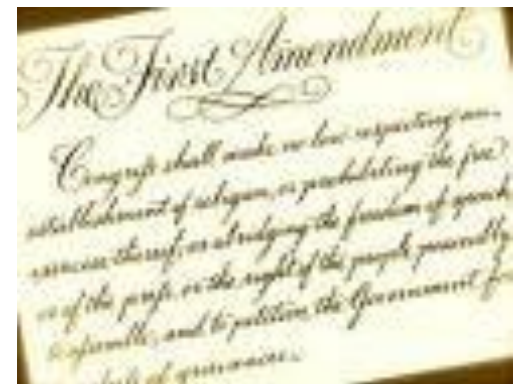 The First Amendment
Congress shall make no law respecting an
establishment of religion, or prohibiting the free
exercise thereof; or abridging the freedom of speech
or of the press, or the right of the people peaceably
to assemble, and to petition the Government for
of grievances.